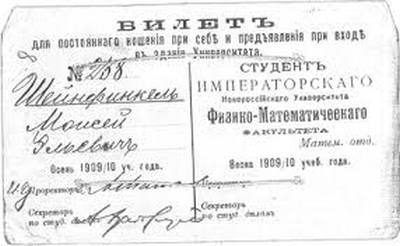 БИЛЕТЪ
для постояннаго ношенія при себѣ и предъявленія при входѣ
въ зданія Университета.
№ 258.
Шейнфинкель
Моисей
Эльевичъ
Осень 1909/10 уч. года.
Проректоръ
Секретарь
по студ. дѣламъ
СТУДЕНТЪ
ИМПЕРАТОРСКАГО
Новороссійскаго Университета
Физико-Математическаго
ФАКУЛЬТЕТА
Матем. отд.
Весна 1909/10 учеб. года.
Секретарь
по студ. дѣламъ